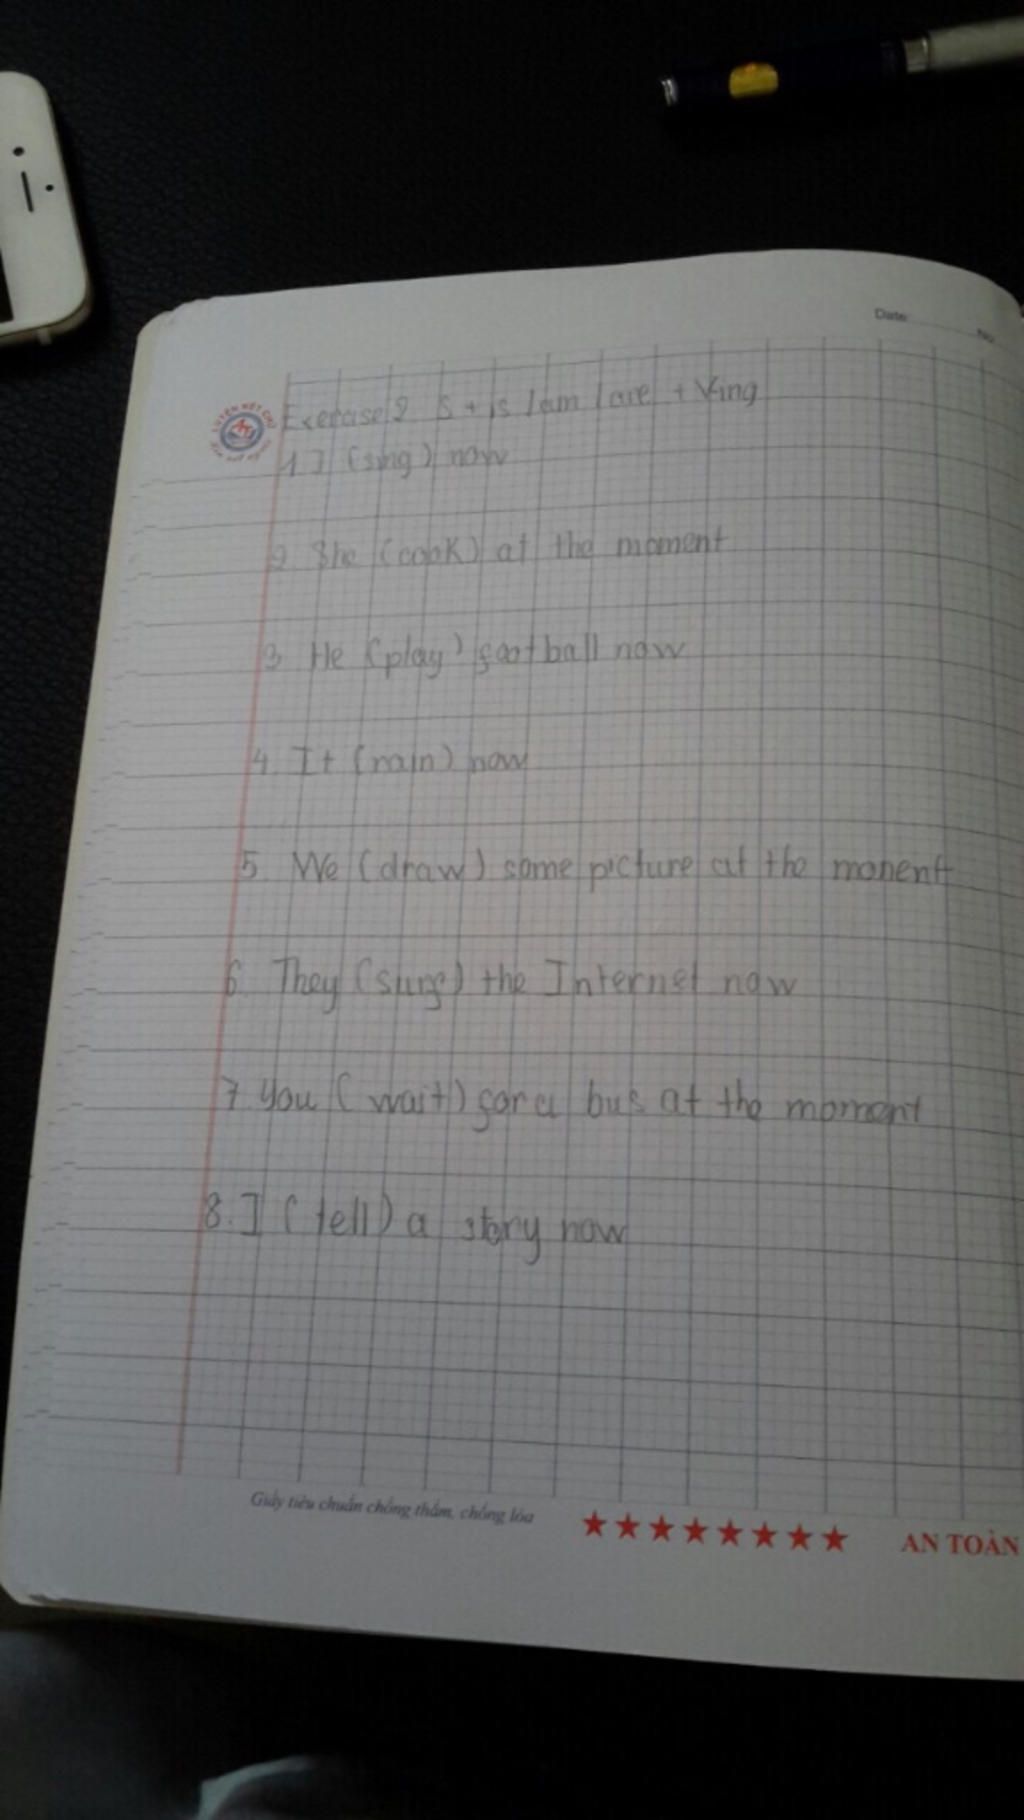 Date: No
Exercise 2 S + is / am / are + V-ing
1. I (sing) now
2. She (cook) at the moment
3. He (play) football now
4. It (rain) now
5. We (draw) some picture at the monent
6. They (surf) the Internet now
7. You ( wait) for a bus at the moment
8. I ( tell) a story now
Giấy tiêu chuẩn chống thấm, chống lóa
AN TOÀN